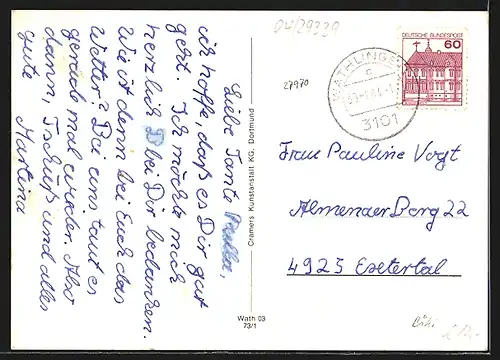 Liebe Tante Paula,
ich hoffe, daß es Dir gut
geht. Ich möchte mich
herzlich bei Dir bedanken.
Wie ist denn bei Euch das
Wetter? Bei uns taut es
gerade mal wieder. Also
dann, Tschüß und alles
gute
Martina
Cramers Kunstanstalt KG, Dortmund
Wath 03
73/1
27970
WATHLINGEN
3101
DEUTSCHE BUNDESPOST
60
Frau Pauline Vogt
Almenaer Berg 22
4925 Extertal